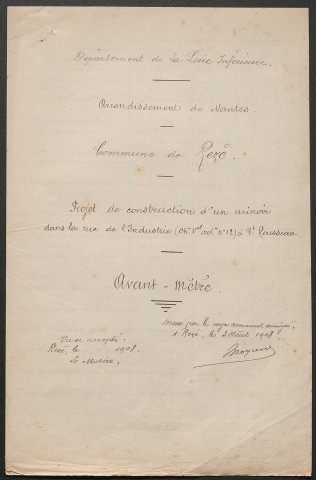 Département de la Loire Inférieure.
Arrondissement de Nantes.
Commune de Rezé.
Projet de construction d'un urinoir
dans la rue de l'Industrie (Ch. Val ord. n° 12) à Pt Rousseau
Avant-métré.
Dressé par le voyer communal soussigné,
à Rezé, le 3 Août 1908
Vu et accepté,
Rezé, le 1908.
Le Maire,